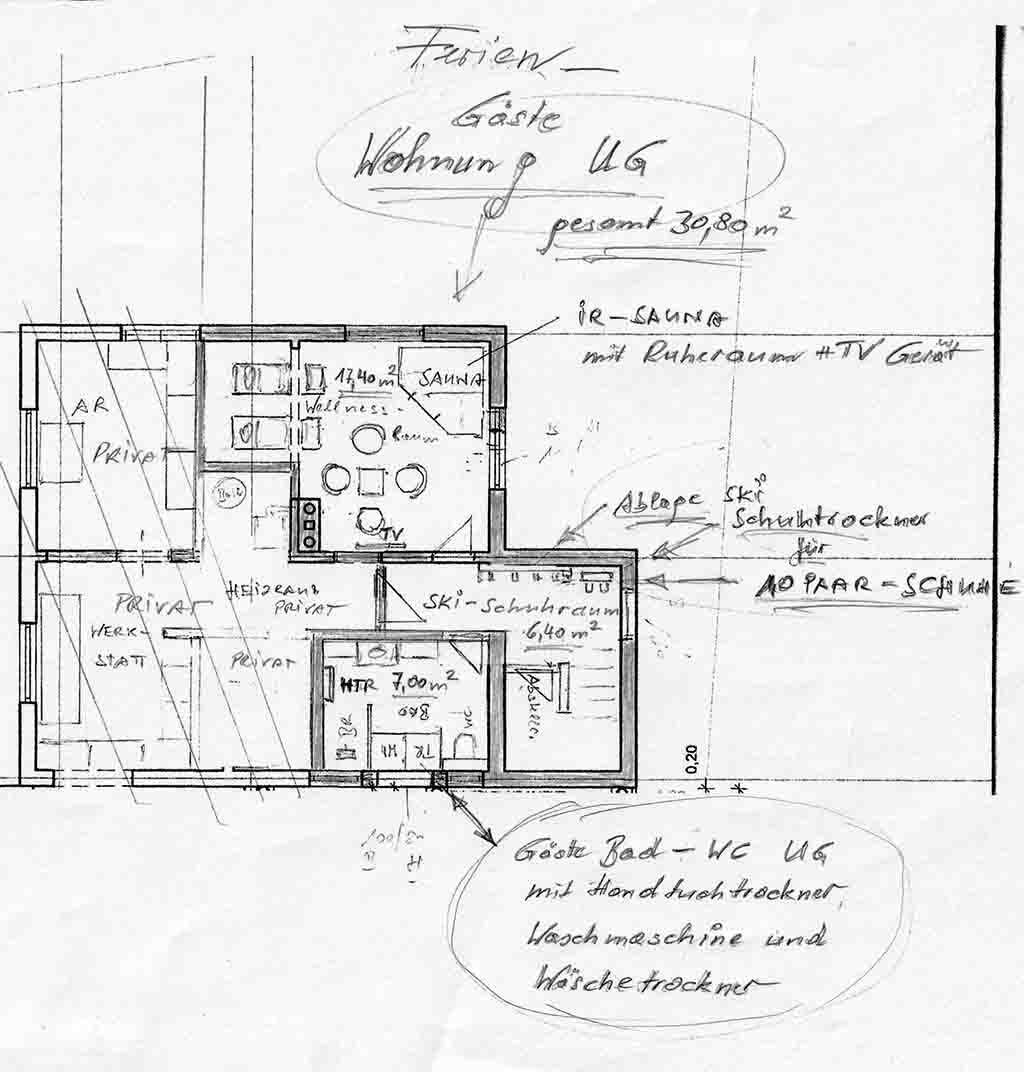 Ferien
Gäste
Wohnung UG
gesamt 30,80 m²
IR-SAUNA
mit Ruheraum + TV Gerät
17,40 m²
SAUNA
Wellness-
Raum
AR
PRIVAT
TV
Ablage Ski
Schuhtrockner
für
10 PAAR-SCHUHE
PRIVAT
HEIZRAUM
PRIVAT
SKi-Schuhraum
6,40 m²
WERK-
STATT
PRIVAT
HTR 7,00 m²
BAD
WC
BR
WM
TR
0,20
100/80
B H
Gäste Bad - WC UG
mit Handtuchtrockner,
Waschmaschine und
Wäschetrockner